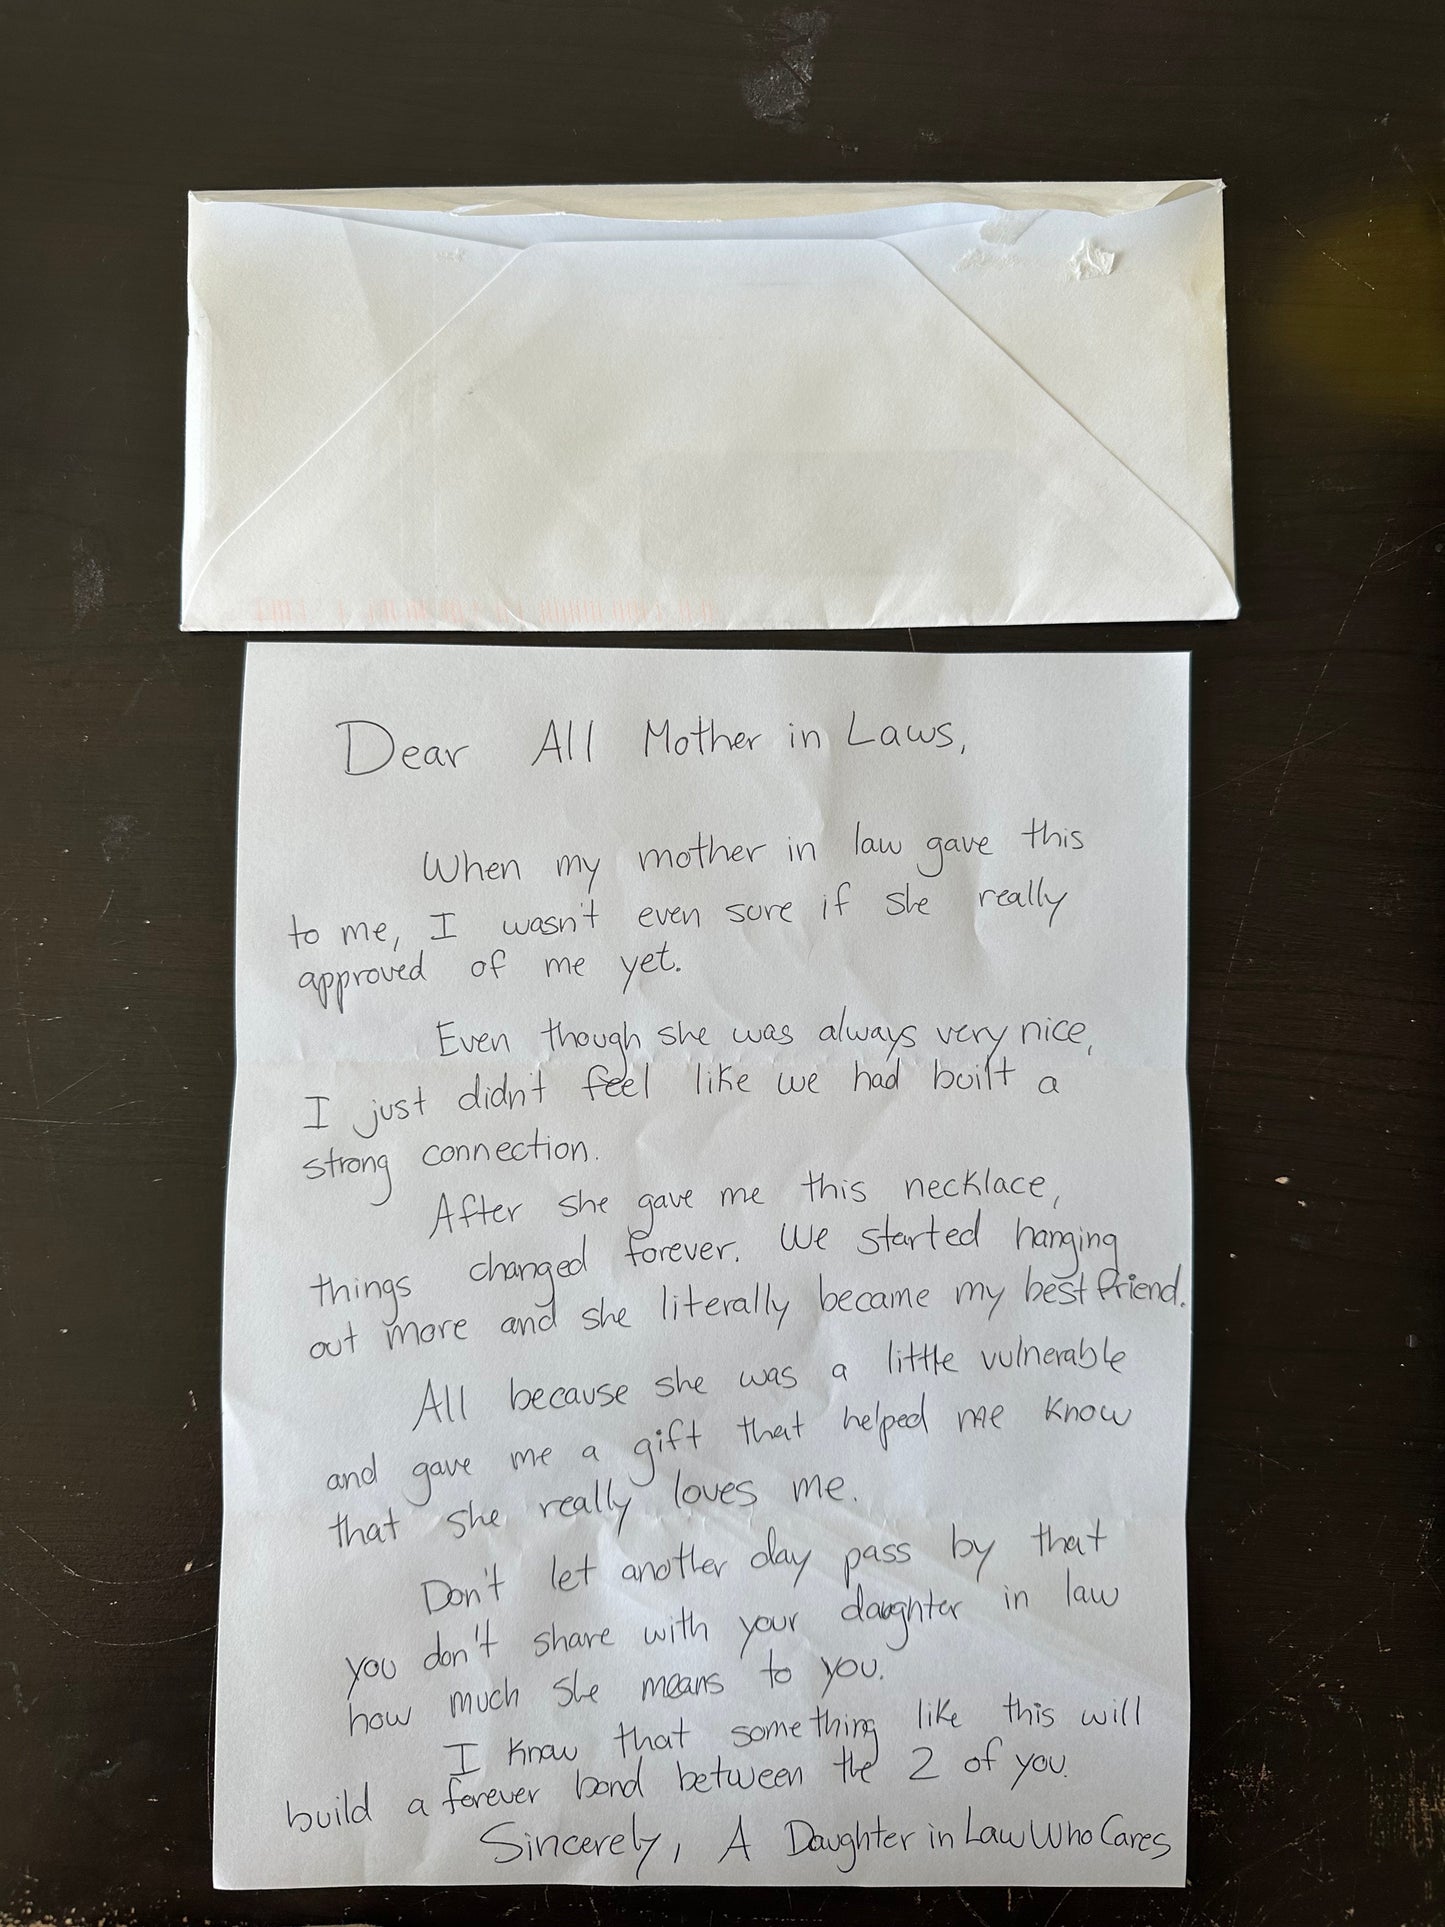 Dear All Mother in Laws,
When my mother in law gave this
to me, I wasn't even sure if she really
approved of me yet.
Even though she was always very nice,
I just didn't feel like we had built a
strong connection.
After she gave me this necklace,
things changed forever. We started hanging
out more and she literally became my best friend.
All because she was a little vulnerable
and gave me a gift that helped me know
that she really loves me.
Don't let another day pass by that
you don't share with your daughter in law
how much she means to you.
I know that something like this will
build a forever bond between the 2 of you.
Sincerely, A Daughter in Law Who Cares